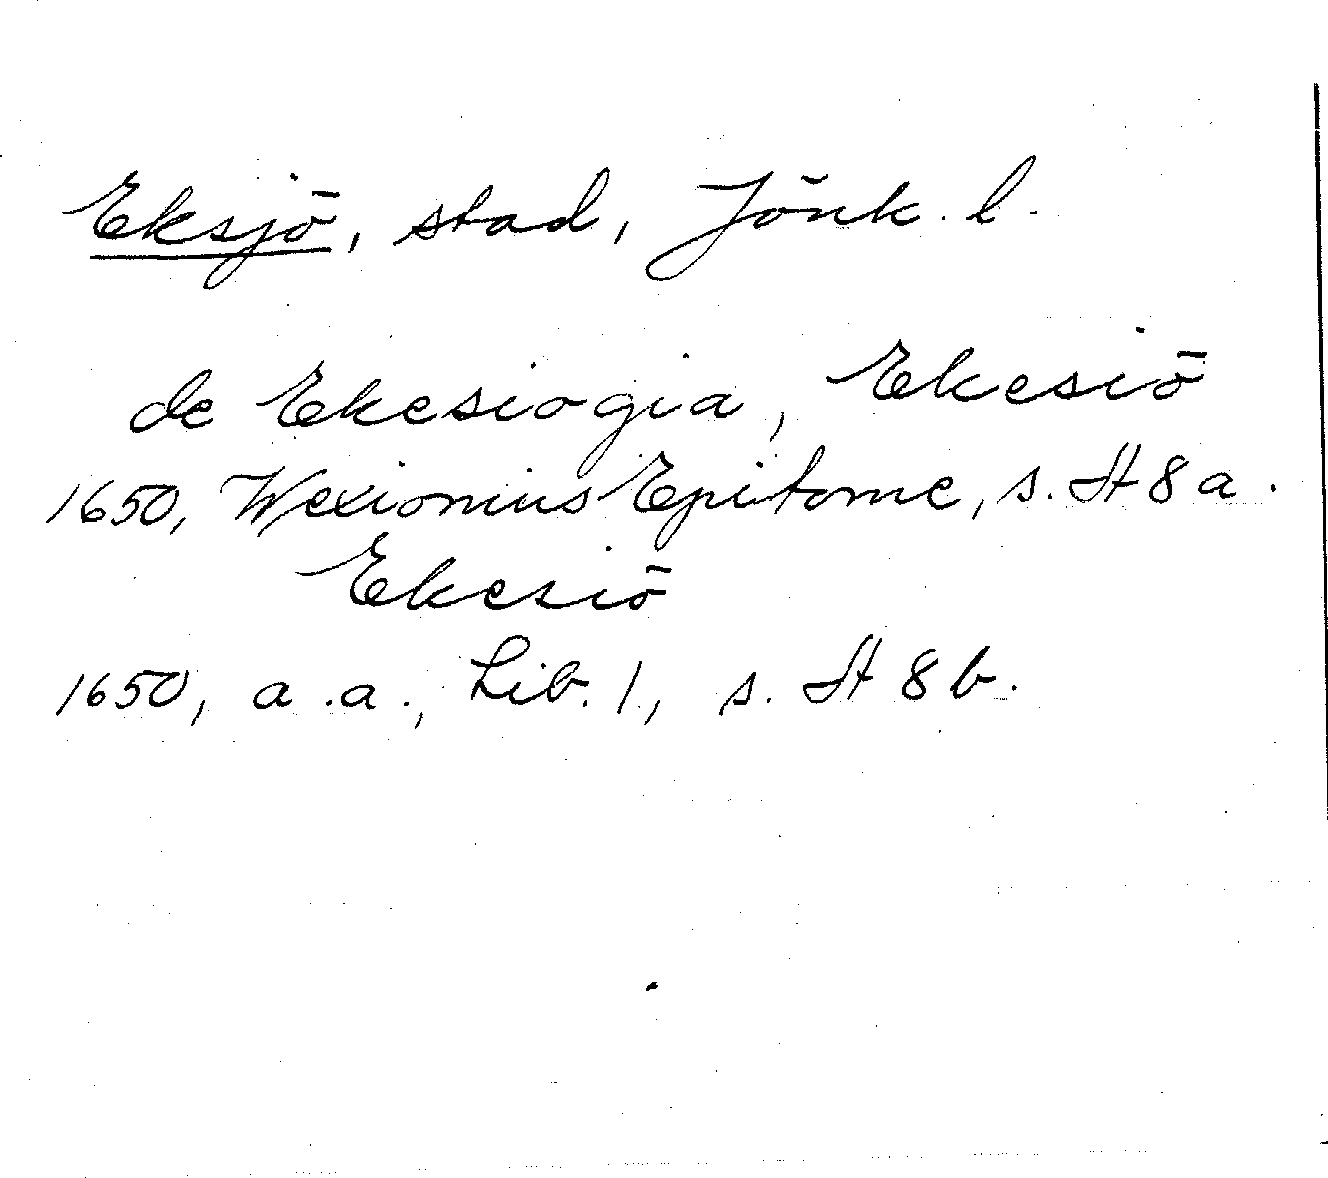 Eksjö, stad, Jönk. l.
de Ekesiogia, Ekesiö
1650, Wexionius Epitome, s. H 8 a.
Ekesiö
1650, a.a., Lib. 1, s. H 8 b.